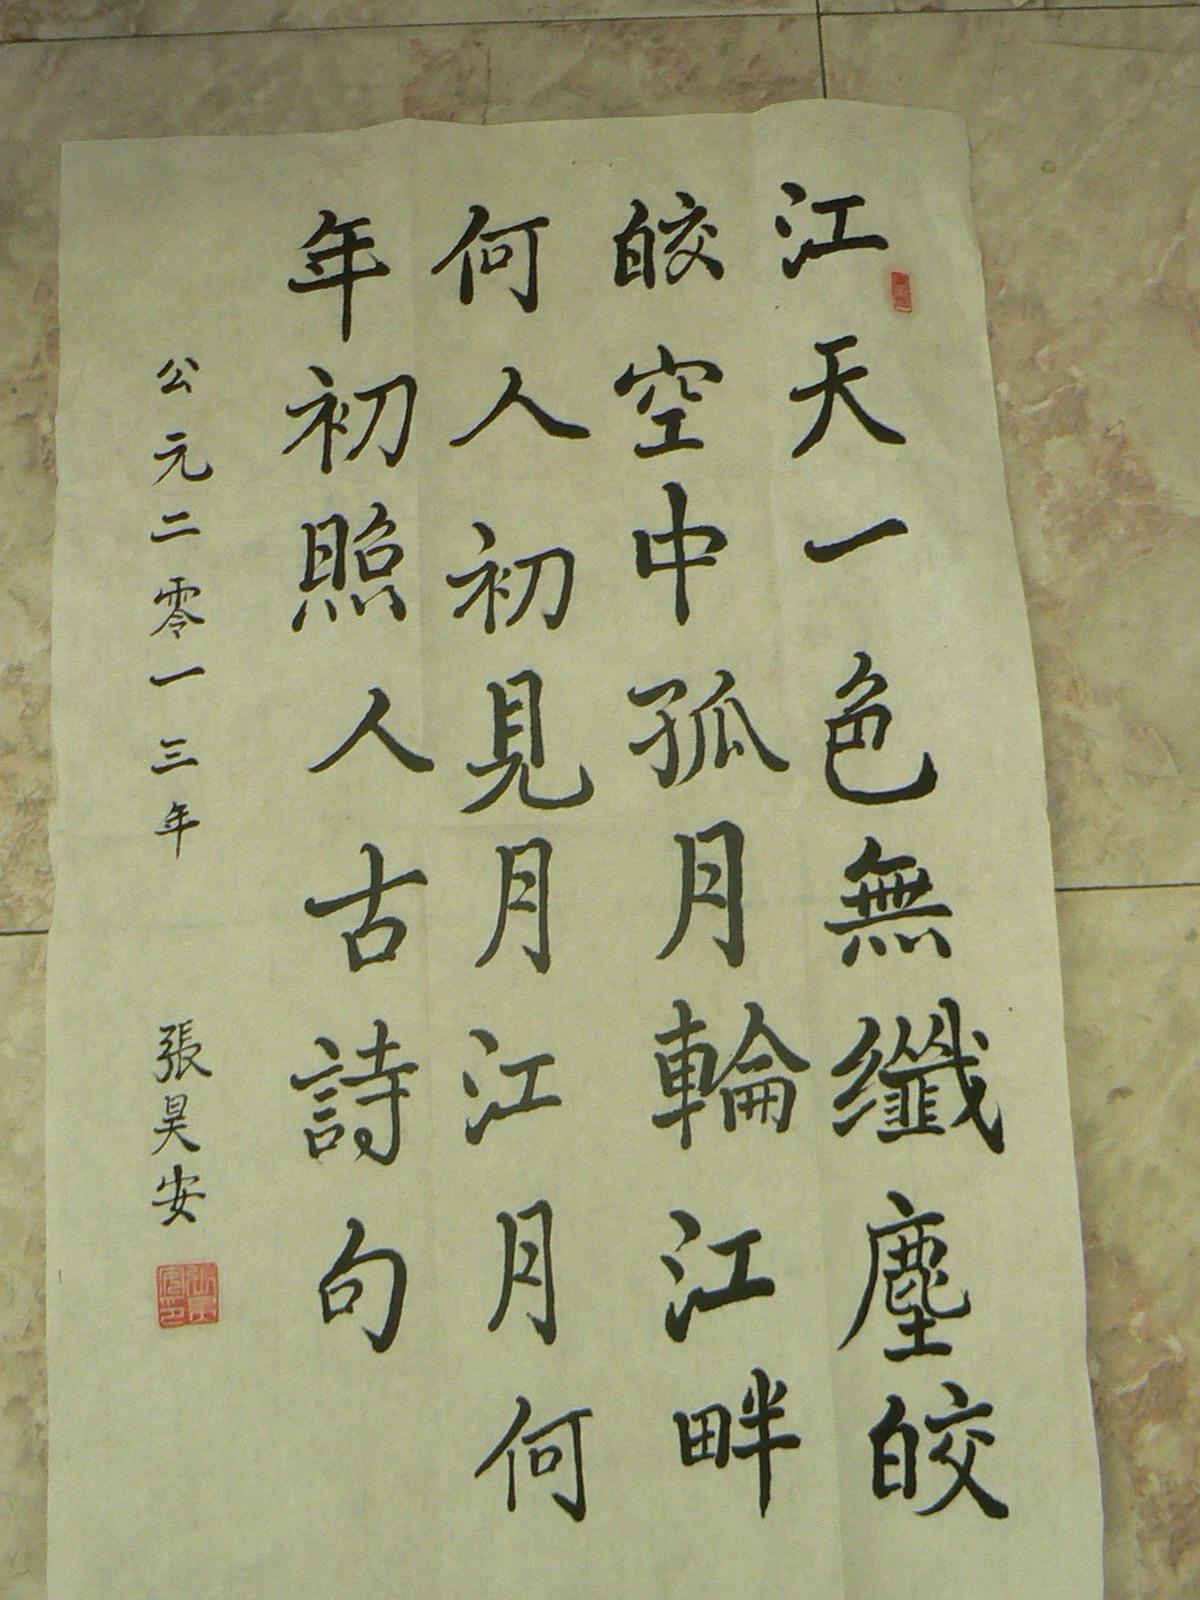 江天一色無纖塵皎
皎空中孤月輪江畔
何人初見月江月何
年初照人古詩句
公元二零一三年 張昊安